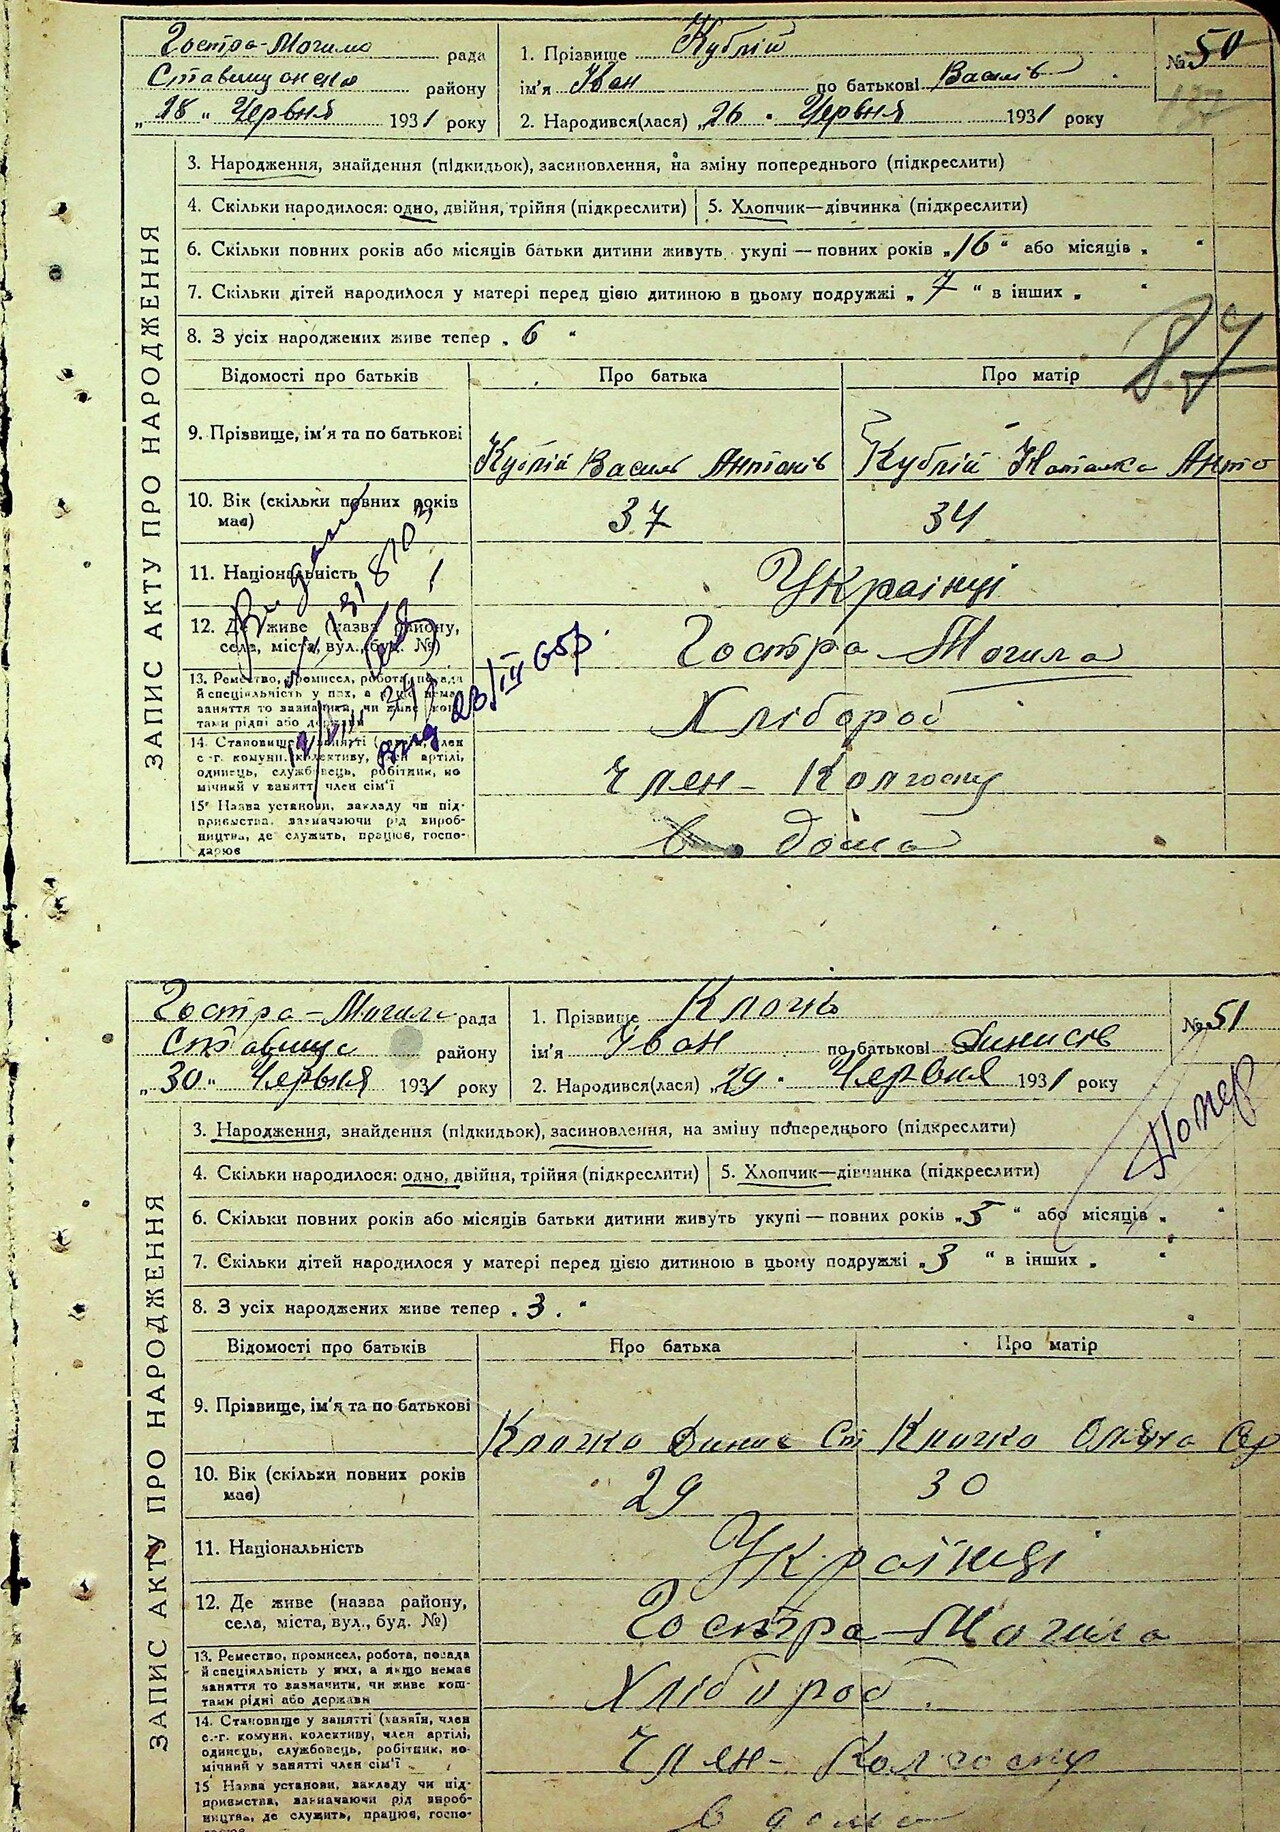 Гостра-Могила рада
Ставищанськ району
„28“ Червня 1931 року
1. Прізвище Кублій
ім'я Іван по батькові Василів
2. Народився(лася) „26 Червня 1931 року
№ 50
3. Народження, знайдення (підкидьок), засиновлення, на зміну попереднього (підкреслити)
4. Скільки народилося: одно, двійня, трійня (підкреслити) 5. Хлопчик—дівчинка (підкреслити)
6. Скільки повних років або місяців батьки дитини живуть укупі — повних років „16“ або місяців „ “
7. Скільки дітей народилося у матері перед цією дитиною в цьому подружжі „7“ в інших „ “
8. З усіх народжених живе тепер „6“
87
ЗАПИС АКТУ ПРО НАРОДЖЕННЯ
Відомості про батьків Про батька Про матір
9. Прізвище, ім'я та по батькові Кублій Василь Антонів Кублій Наталка Анто
10. Вік (скільки повних років має) 37 34
11. Національність Українці
12. Де живе (назва району, села, міста, вул., буд. №) Гостра Могила
13. Ремество, промисел, робота, посада
й спеціяльність у них, а якщо немає
заняття то зазначити, чи живе кош-
тами рідні або держави Хлібороб
14. Становище у занятті (хазяїн, член
с.-г. комуни, колективу, член артілі,
одинець, службовець, робітник, по-
мічний у занятті член сім'ї Член-Колгоспу
15 Назва установи, закладу чи під-
приємства, зазначаючи рід вироб-
ництва, де служить, працює, госпо-
дарює в дома
вид 23/III 65р.
Гостра-Могила рада
Ставище району
„30“ Червня 1931 року
1. Прізвище Клочко
ім'я Іван по батькові Динисів
2. Народився(лася) „29 Червня 1931 року
№ 51
Помер
3. Народження, знайдення (підкидьок), засиновлення, на зміну попереднього (підкреслити)
4. Скільки народилося: одно, двійня, трійня (підкреслити) 5. Хлопчик—дівчинка (підкреслити)
6. Скільки повних років або місяців батьки дитини живуть укупі — повних років „5“ або місяців „ “
7. Скільки дітей народилося у матері перед цією дитиною в цьому подружжі „3“ в інших „ “
8. З усіх народжених живе тепер „3“
ЗАПИС АКТУ ПРО НАРОДЖЕННЯ
Відомості про батьків Про батька Про матір
9. Прізвище, ім'я та по батькові Клочко Динис Клочко
10. Вік (скільки повних років має) 29 30
11. Національність Українці
12. Де живе (назва району, села, міста, вул., буд. №) Гостра-Могила
13. Ремество, промисел, робота, посада
й спеціяльність у них, а якщо немає
заняття то зазначити, чи живе кош-
тами рідні або держави Хлібороб
14. Становище у занятті (хазяїн, член
с.-г. комуни, колективу, член артілі,
одинець, службовець, робітник, по-
мічний у занятті член сім'ї Член-Колгоспу
15 Назва установи, закладу чи під-
приємства, зазначаючи рід вироб-
ництва, де служить, працює, госпо- в дома